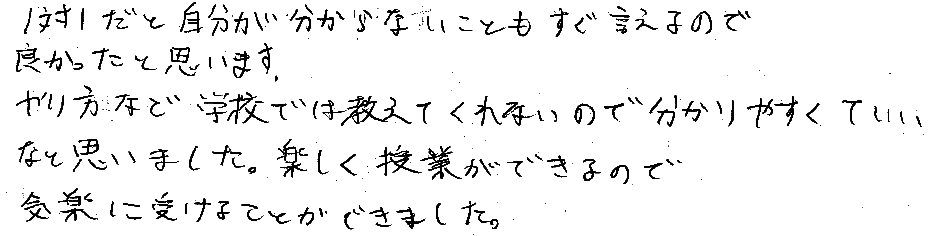 1対1だと自分が分からないこともすぐ言えるので
良かったと思います。
やり方など学校では教えてくれないので分かりやすくていい
なと思いました。楽しく授業ができるので
気楽に受けることができました。